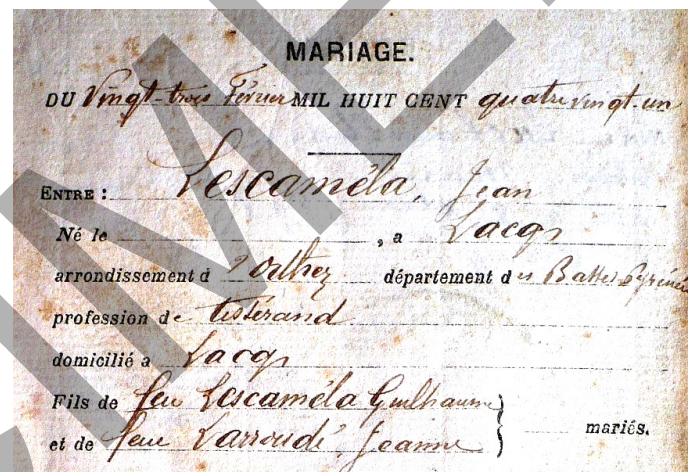 MARIAGE.
DU Vingt-trois Février MIL HUIT CENT quatre vingt-un
ENTRE : Lescaméla, Jean
Né le , a Lacq
arrondissement d'Orthez département des Basses Pyrénées
profession de tisserand
domicilié a Lacq
Fils de feu Lescaméla Guilhaume
et de feue Larroudé, Jeanne } mariés.